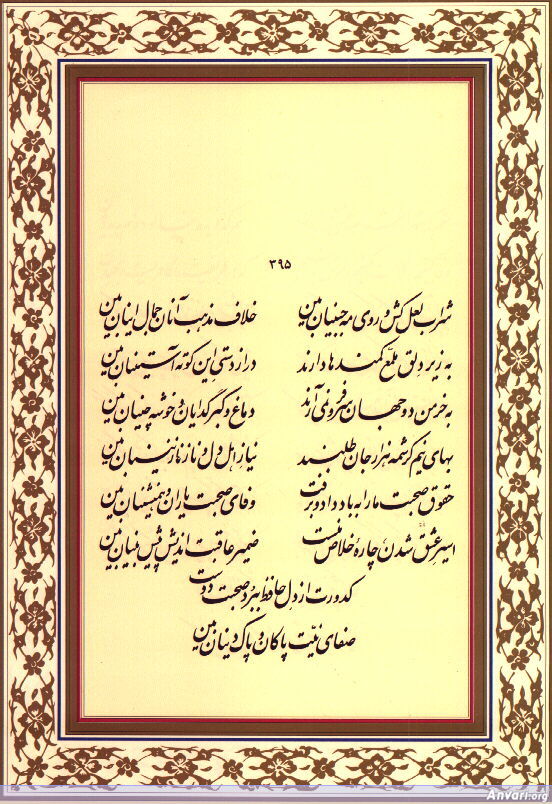 ۳۹۵
شراب لعل کش و روی مه جبینان بین خلاف مذهب آنان جمال اینان بین
به زیر دلق ملمع کمندها دارند درازدستی این کوته آستینان بین
به خرمن دو جهان سر فرو نمی‌آرند دماغ و کبر گدایان و خوشه چینان بین
بهای نیم کرشمه هزار جان طلبند نیاز اهل دل و ناز نازنینان بین
حقوق صحبت ما را به باد داد و برفت وفای صحبت یاران و همنشینان بین
اسیر عشق شدن چارهٔ خلاص منست ضمیر عاقبت اندیش پیش بینان بین
کدورت از دل حافظ ببرد صحبت دوست
صفای نیّت پاکان و پاک دینان بین
Anvari.org